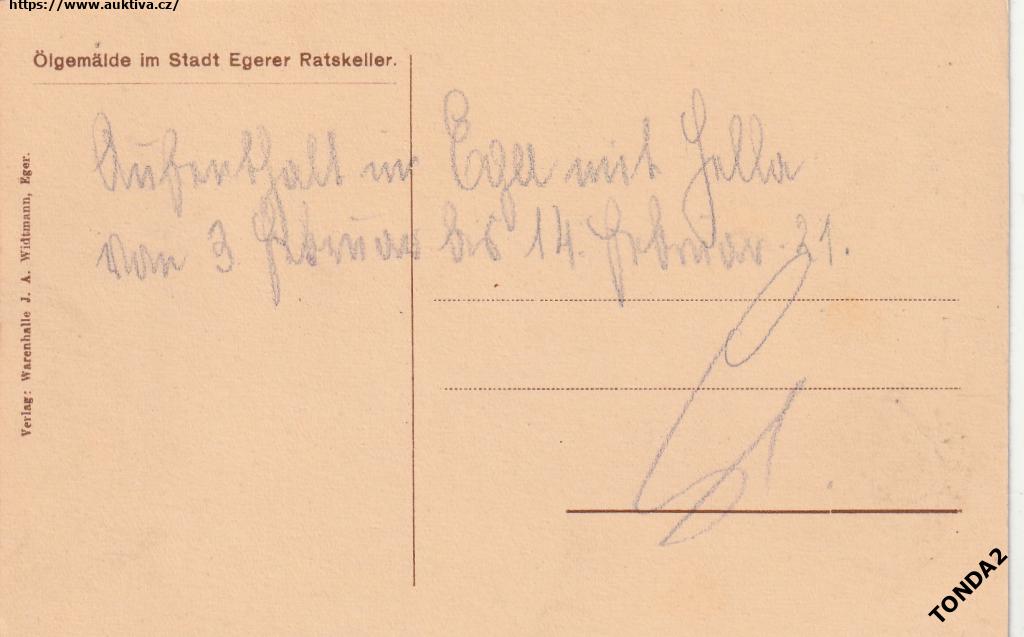 https://www.auktiva.cz/
Ölgemälde im Stadt Egerer Ratskeller.
Aufenthalt in Eger mit Hella
von 3 Februar bis 14. Februar 21.
Verlag: Warenhalle J. A. Widtmann, Eger.
TONDA2